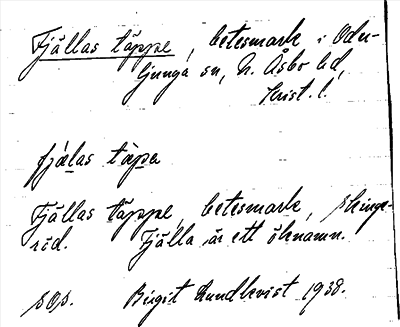 Fjällas täppe, betesmark i Odu-
ljunga sn, N. Åsbo hd,
Krist. l.
fjælas tæpa
Fjällas täppe, betesmark, Skinge-
röd. Fjälla är ett öknamn.
s. o. s. Birgit Lundkvist 1938.